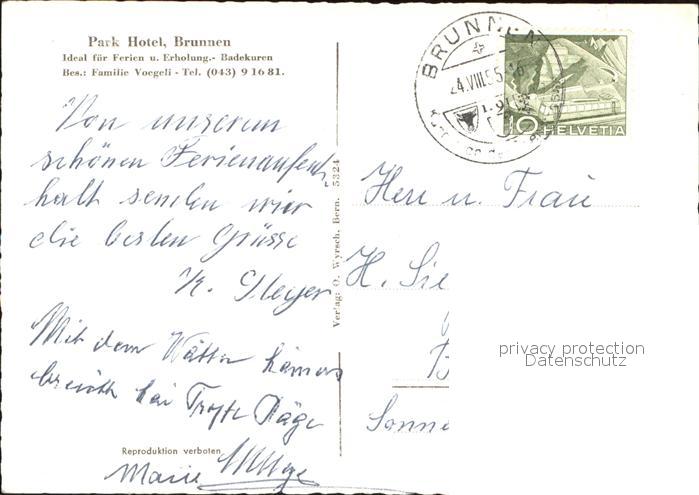 Park Hotel, Brunnen
Ideal für Ferien u. Erholung.- Badekuren
Bes.: Familie Voegeli - Tel. (043) 9 16 81.
Von unserem
schönen Ferienaufent-
halt senden wier
die besten Grüsse
K. Meyer
Mit dem Wätter hämers
breicht kei Tropfe Räge
Marie
Reproduktion verboten
Verlag: O. Wyrsch, Bern. 5324
BRUNNEN
24.VIII.55
10 HELVETIA
Herr u. Frau
H. Sie
Sonne
privacy protection
Datenschutz